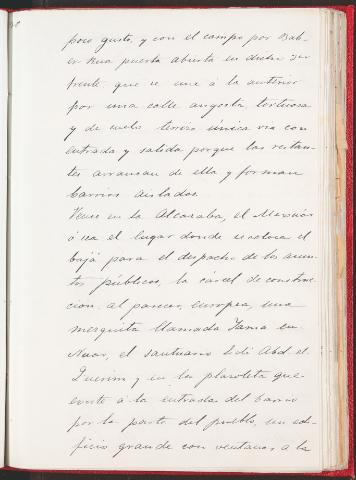 poco gusto, y con el campo por Bab-
er Rua puerta abierta en dicho
frente que se une á la anterior
por una calle angosta, tortuosa
y de suelo terreo única via con
entrada y salida porque las restan-
tes arrancan de ella y forman
barrios aislados.
Vense en la Alcazaba, el Mexuar
ó sea el lugar donde se coloca el
bajá para el despacho de los asun-
tos públicos, la cárcel de construc-
cion, al parecer, europea, una
mezquita llamada Yama en-
Nuar, el santuario Sidi Abd el
Querim y en la plazoleta que
existe á la entrada del barrio
por la parte del pueblo, un edi-
ficio grande con ventanas á la